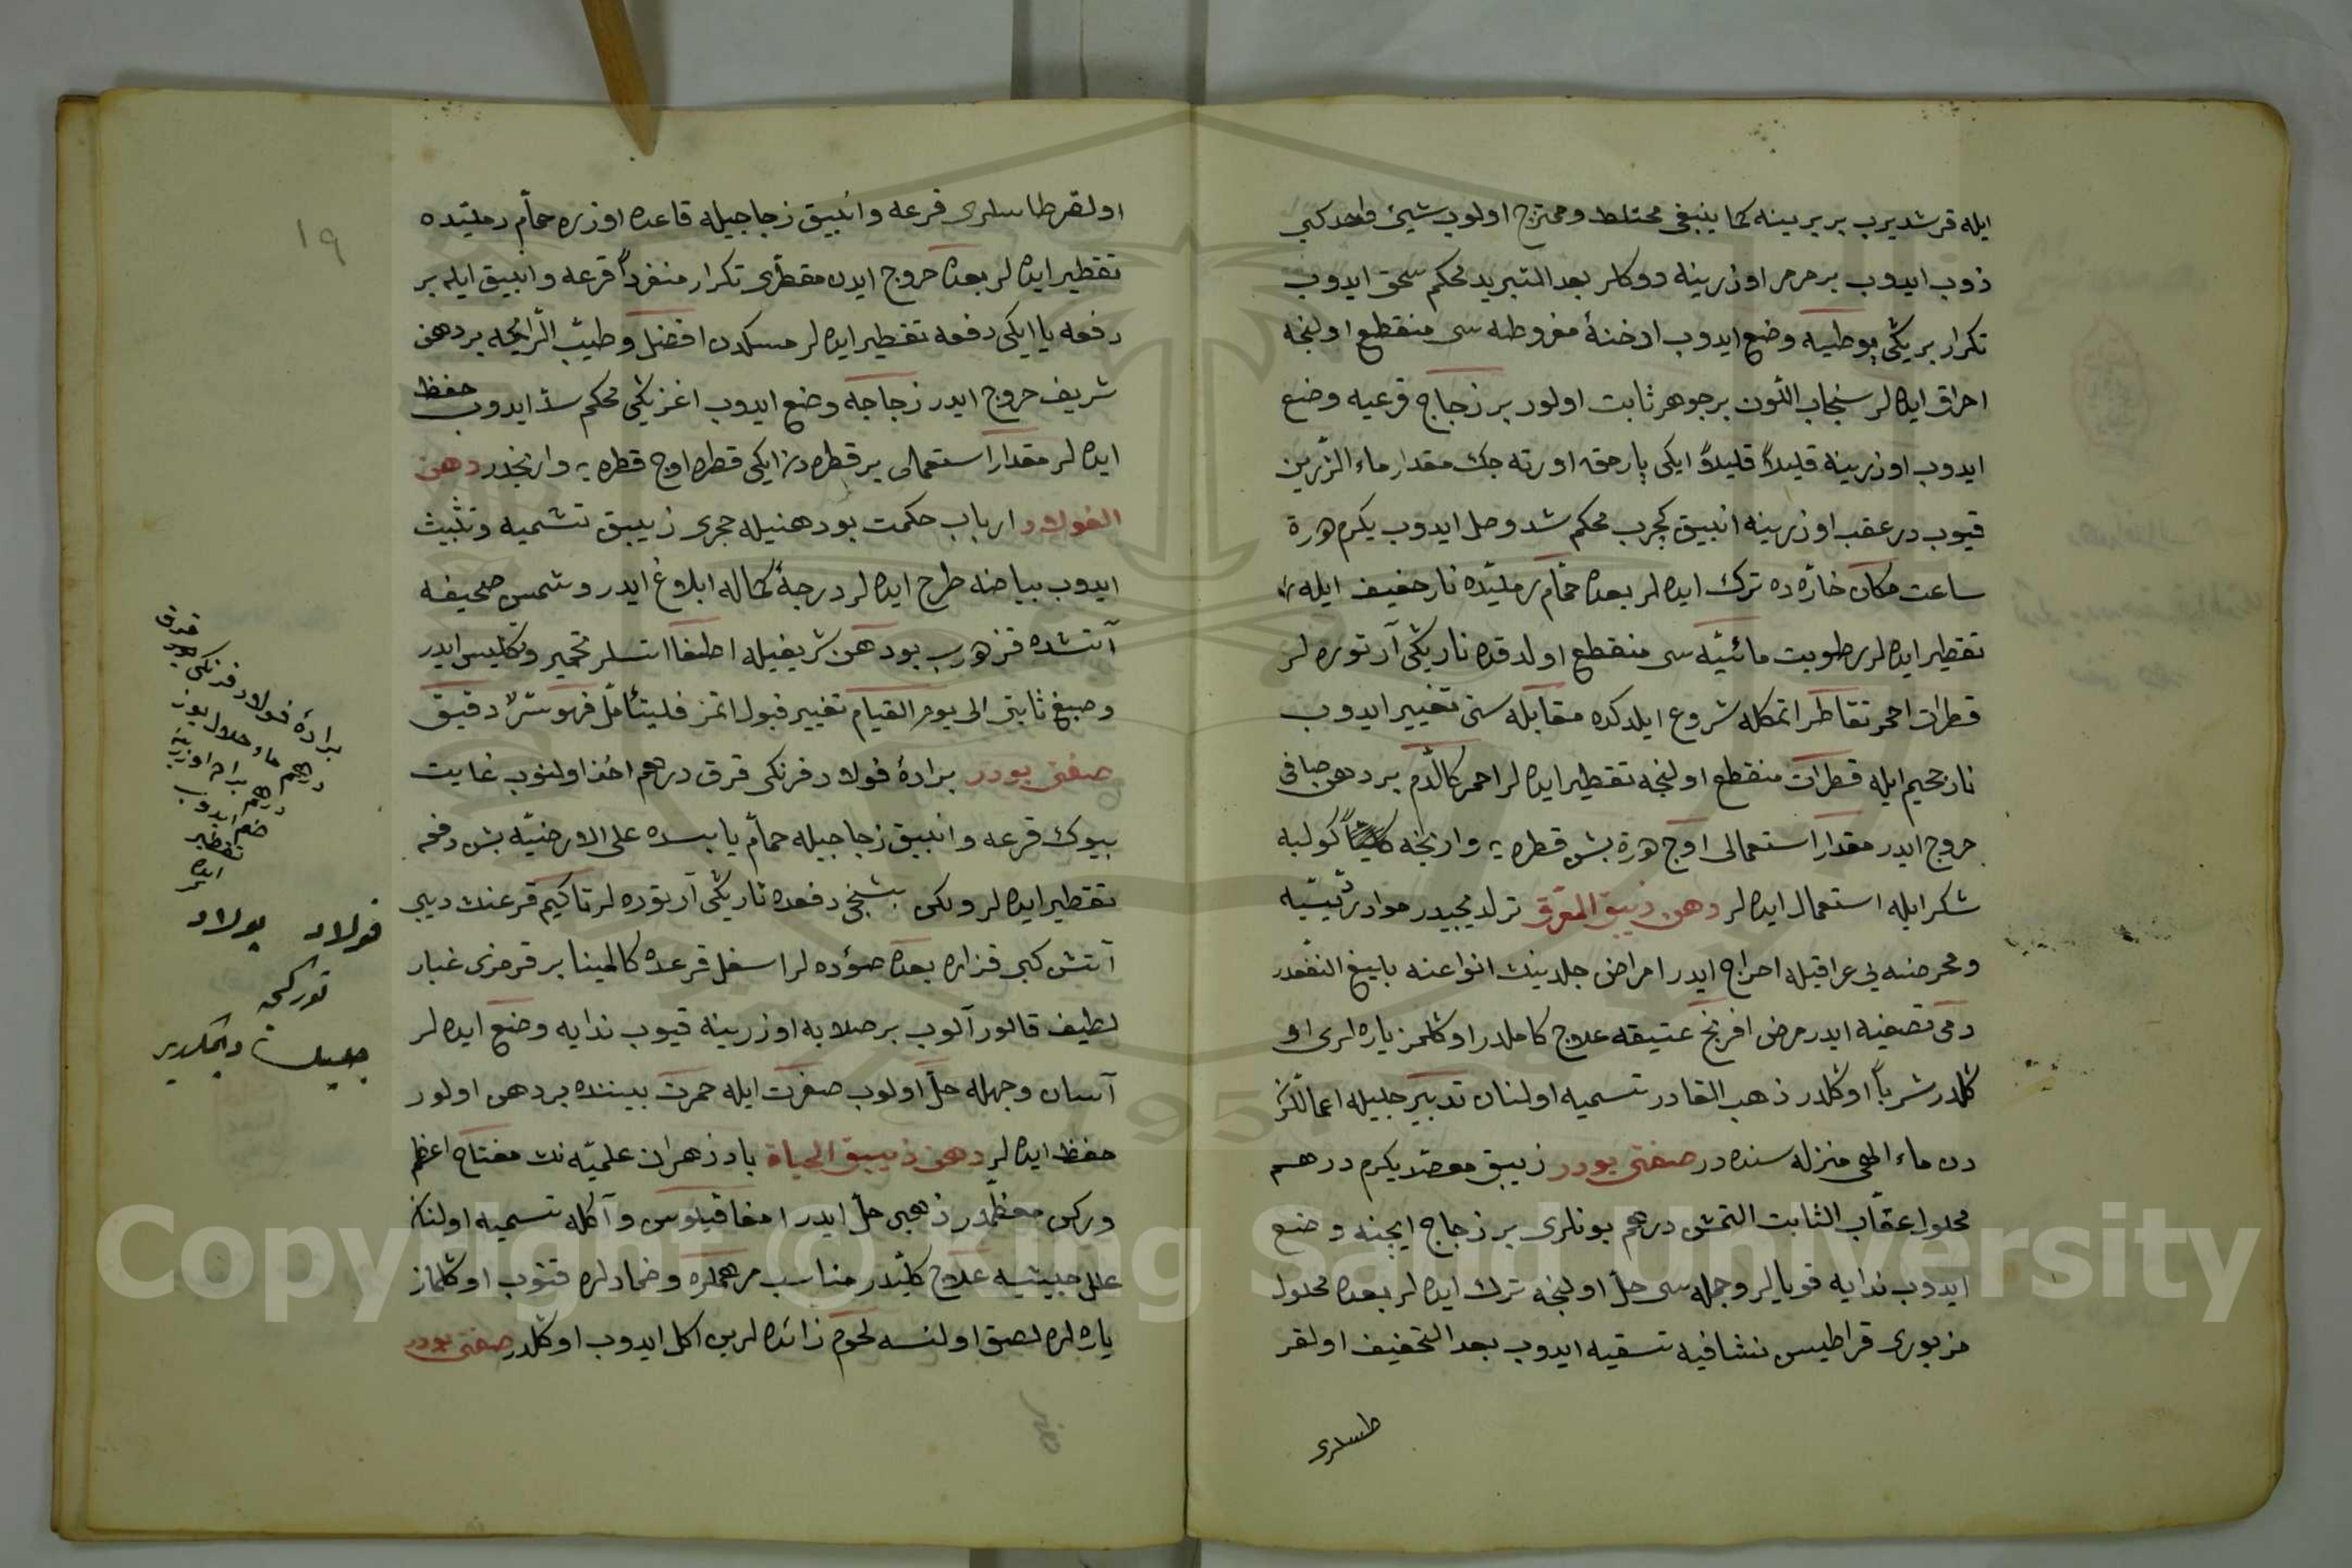 ايله قرشديرب بربرينه كما ينبغى مختلط وممتزج اولوب شيئ واحد كبى
ذوب ايدوب بر مرمر اوزرينه دوكلر بعد التبريد محكم سحق ايدوب
تكرار بريكى بوطيه وضع ايدوب ادخنۀ مفروطه سى منقطع اولنجه
احراق ايده لر سنجاب اللون بر جوهر ثابت اولور بر زجاج قرعيه وضع
ايدوب اوزرينه قليلاً قليلاً ايكى پارمق اورته جك مقدار ماء الزرين
قيوب در عقب اوزرينه انبيق كچرب محكم شد وصل ايدوب يكرم درة
ساعت مكان حارّه ده ترك ايده لر بعده حمّام رمليّده نار خفيف ايله
تقطير ايده لر رطوبت مائيّه سى منقطع اولدقده ناريكى آرتوره لر
قطرات احمر تقاطر اتمكله شروع ايلدكده مقابله سنى تغيير ايدوب
نار جحيم ايله قطرات منقطع اولنجه تقطير ايده لر احمر كالدّم بر دهن صافى
خروج ايدر مقدار استعمالى اوج درة بش قطره يه وارنجه كوليه
شكر ايله استعمال ايده لر دهن زيبق المعرق ترلد يجيدر مواد رئيسّيه
ومحرضنه يى عراقيله اخراج ايدر امراض جلدينك انواعنه بايغ النفعدر
دمى تصفيه ايدر مرض افرنج عتيقه علاج كاملدر اوكلمز ياره لرى او
كلدر شرباً اوكلدر ذهب القادر تسميه اولنان تدبير جليله اعمالكز
دن ماء الهى منزله سنده در صفتى بودر زيبق مصعد يكرم درهم
محلول عقاب الثابت التمش درهم بونلرى بر زجاج ايجنه وضع
ايدوب ندايه قويالر وجمله سى حلّ اولنجه ترك ايده لر بعده محلول
مزبورى قراطيس نشافيه تسقيه ايدوب بعد التخفيف اولقر
طسلرى
١٩
اولقرطاسلرى قرعه وانبيق زجاجيله قاعده اوزره حمّام رمليّده
تقطير ايده لر بعده خروج ايدن مقطرى تكرار منفرداً قرعه وانبيق ايله بر
دفعه يا ايكى دفعه تقطير ايده لر مسكدن افضل وطيّب الرّايحه بر دهن
شريف خروج ايدر زجاجه وضع ايدوب اغزيكى محكم سدّ ايدوب حفظ
ايده لر مقدار استعمالى بر قطره دن ايكى قطره اوج قطره يه وارنجدر دهن
الفولاد ارباب حكمت بو دهنيله حجرى زيبق تشميه وتثبيت
ايدوب بياضه طرح ايده لر درجۀ كماله ابلاغ ايدر وشمس صحيفه
آتشده قزدرب بو دهن شريفيله اطفا اتسلر تحمير وتكليس ايدر
وصبغ ثابتى الى يوم القيام تغيير قبول اتمز فليتأمل فهو سرّ دقيق
صفتى بودر برادۀ فولاد فرنكى قرق درهم اخذ اولنوب غايت
بيوك قرعه وانبيق زجاجيله حمام يابسده على الارضيّه بش دفعه
تقطير ايده لر ولكن بشنجى دفعده ناريكى آرتوره لر تاكيم قرعنك ديبى
آتش كبى قزاره بعده صوؤده لر اسفل قرعده كالمينا بر قرمزى غبار
لطيف قالور آلوب بر صلابه اوزرينه قيوب ندايه وضع ايده لر
آسان وجهله حلّ اولوب صفرت ايله حمرت بيننده بر دهن اولور
حفظ ايده لر دهن زيبق الحياة بادزهران علميّه نك مفتاح اعظم
وركن معظمدر ذهبى حلّ ايدر امغاقيلوس وآكله تسميه اولنان
علل خبيثيه علاج كليّدر مناسب مرهملره وضمادلره قتوب اوكلماز
ياره لره لصق اولنسه لحوم زائده لرين اكل ايدوب اوكلدر صفتى بودر
برادۀ فولاد فرنكى قرق
درهم ماء حلال يوز
درهم براده اوزرينه
ضم ايدوب
تقطير
ايده لر
فولاد پولاد
توركى
جليك ديمكدر